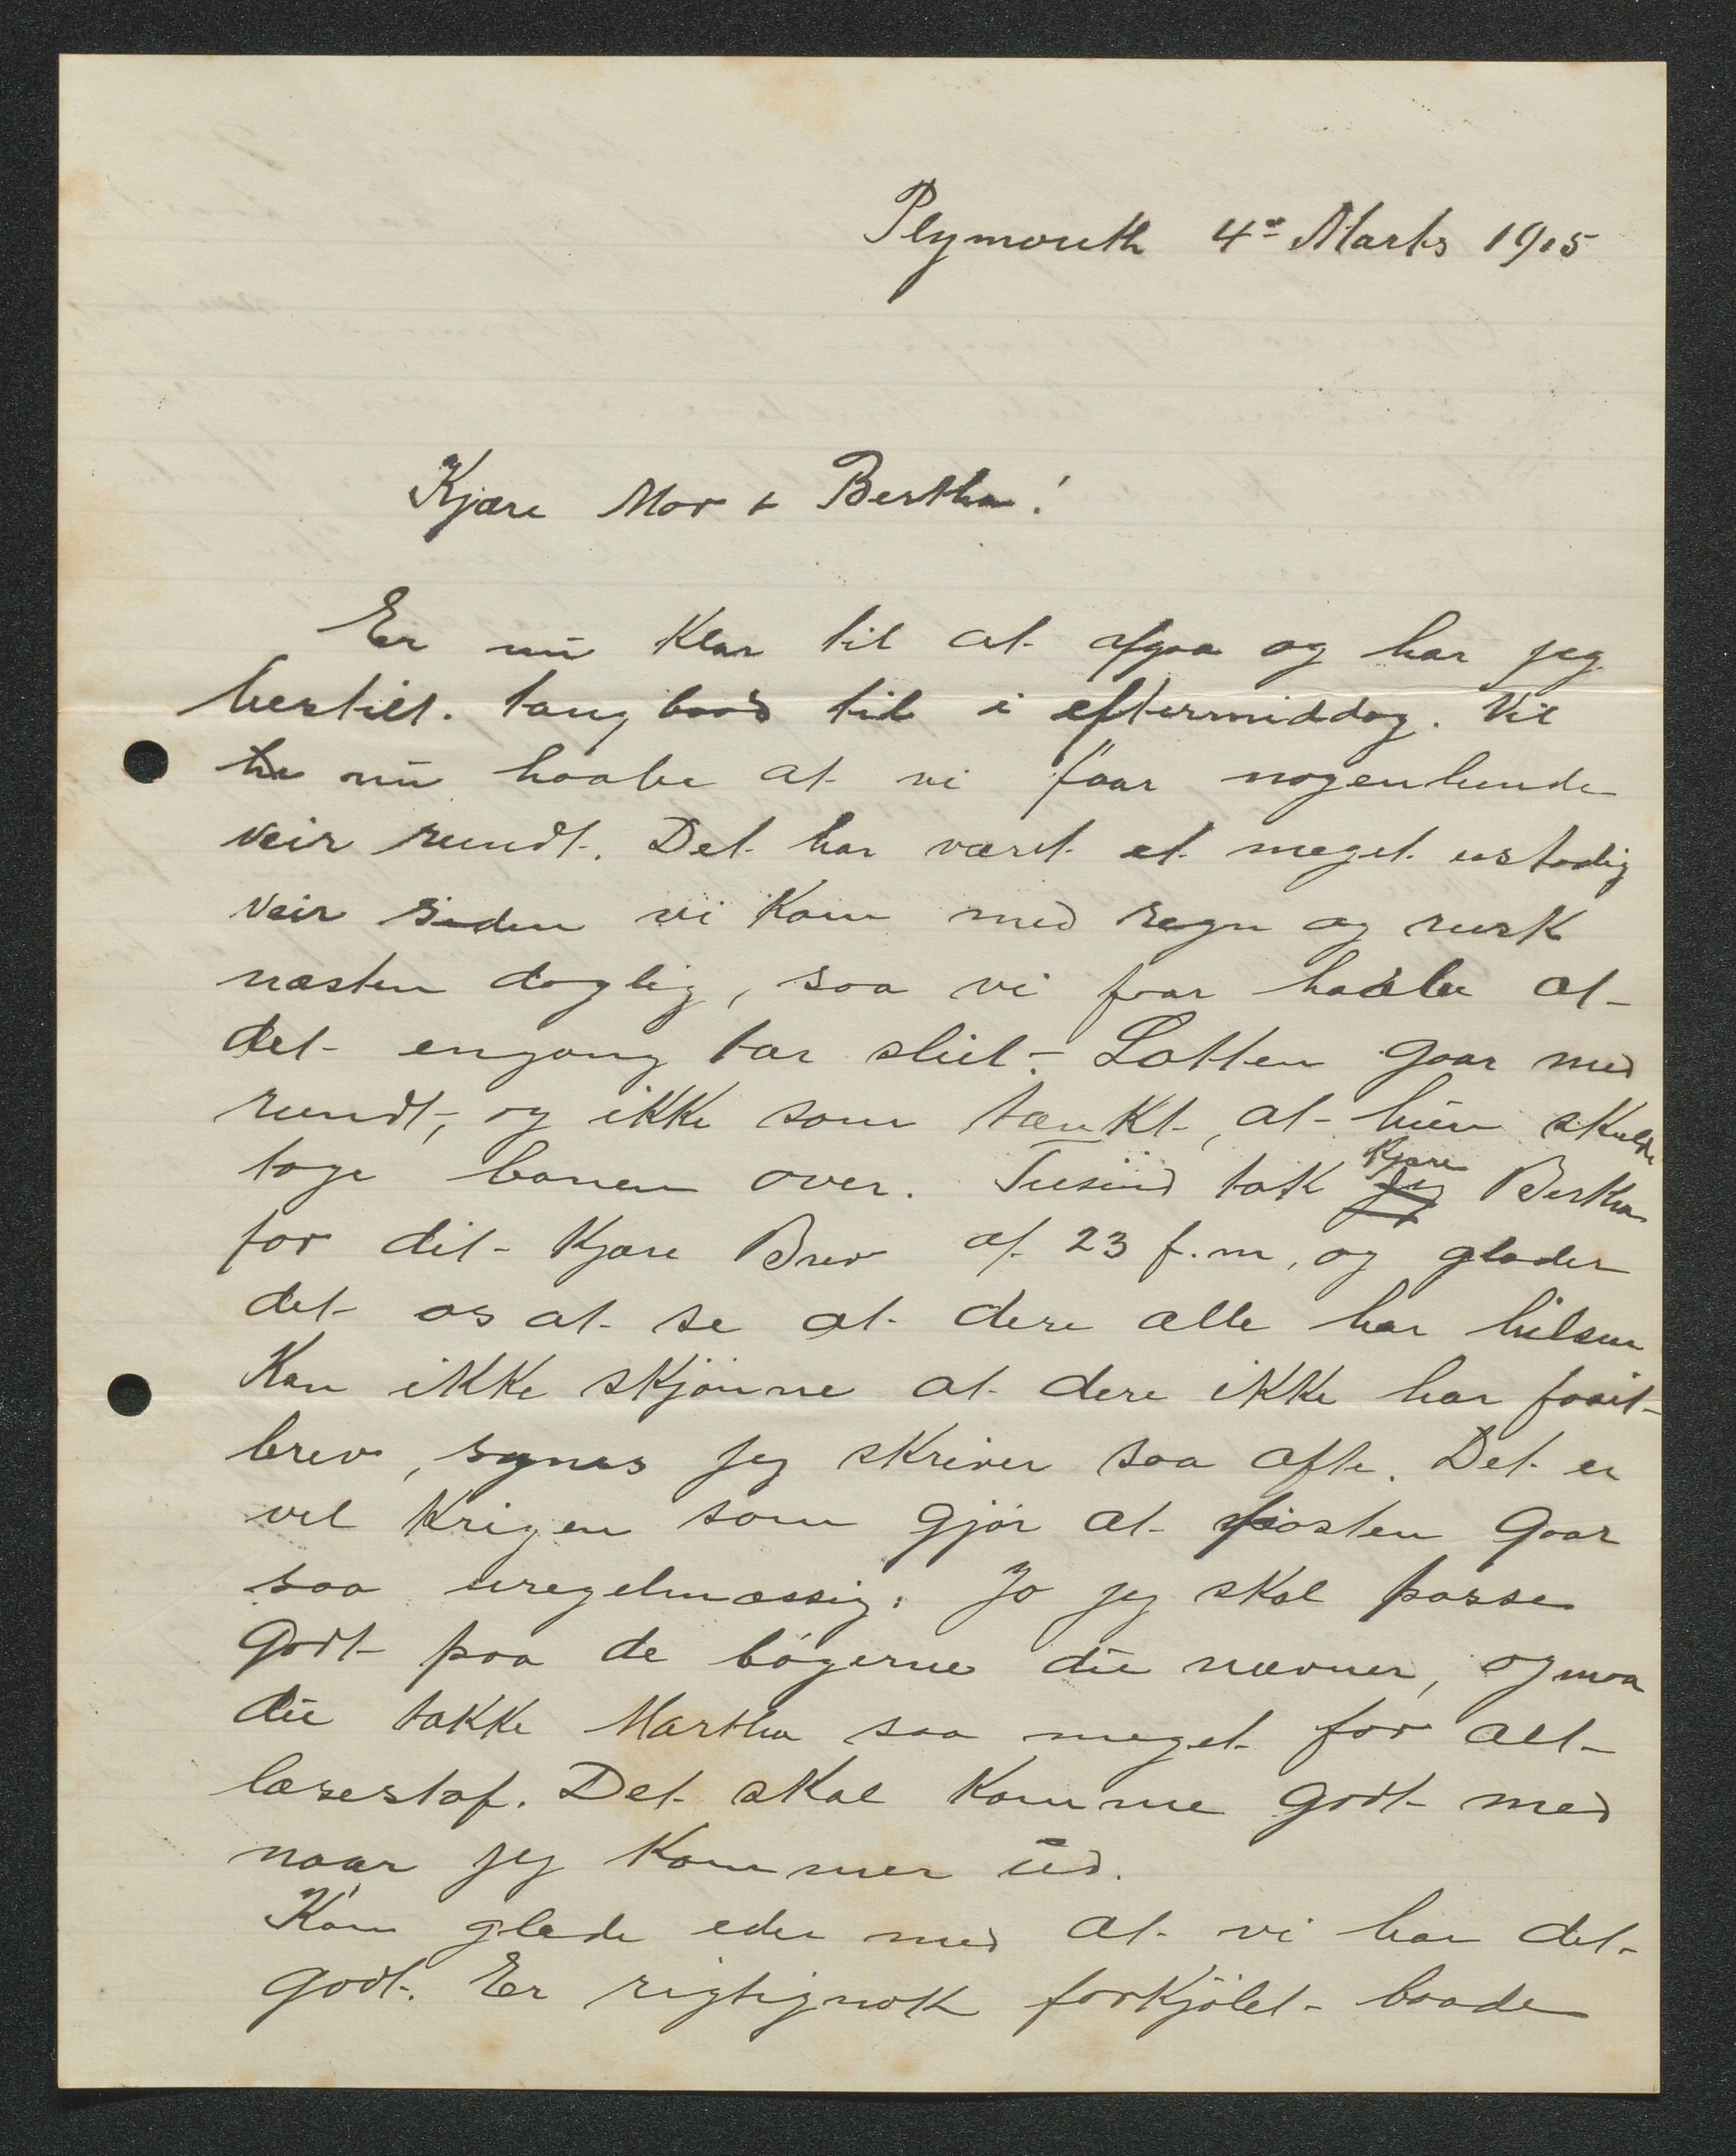 Plymouth 4de Marts 1915
Kjære Mor & Bertha!
Er nu klar til at afgaa og har jeg
bestilt taugbaad til i eftermiddag. Vil
nu haabe at vi faar nogenlunde
veir rundt. Det har været et meget ustadig
veir siden vi kom med regn og rusk
næsten daglig, saa vi faar haabe at
det engang tar slut. Lotten gaar med
rundt, og ikke som tænkt, at hun skulde
tage banen over. Tusind tak kjære Bertha
for dit kjære Brev af 23 f.m, og glæder
det os at se at dere alle har hilsen
Kan ikke skjønne at dere ikke har faait
brev, synes jeg skriver saa ofte. Det er
vel krigen som gjør at posten gaar
saa uregelmæssig. Jo jeg skal passe
godt paa de bøgerne du nævner, og maa
du takke Martha saa meget for alt
læsestof. Det skal komme godt med
naar jeg kommer ud.
Kan glæde eder med at vi har det
godt. Er rigtignok forkjølet baade